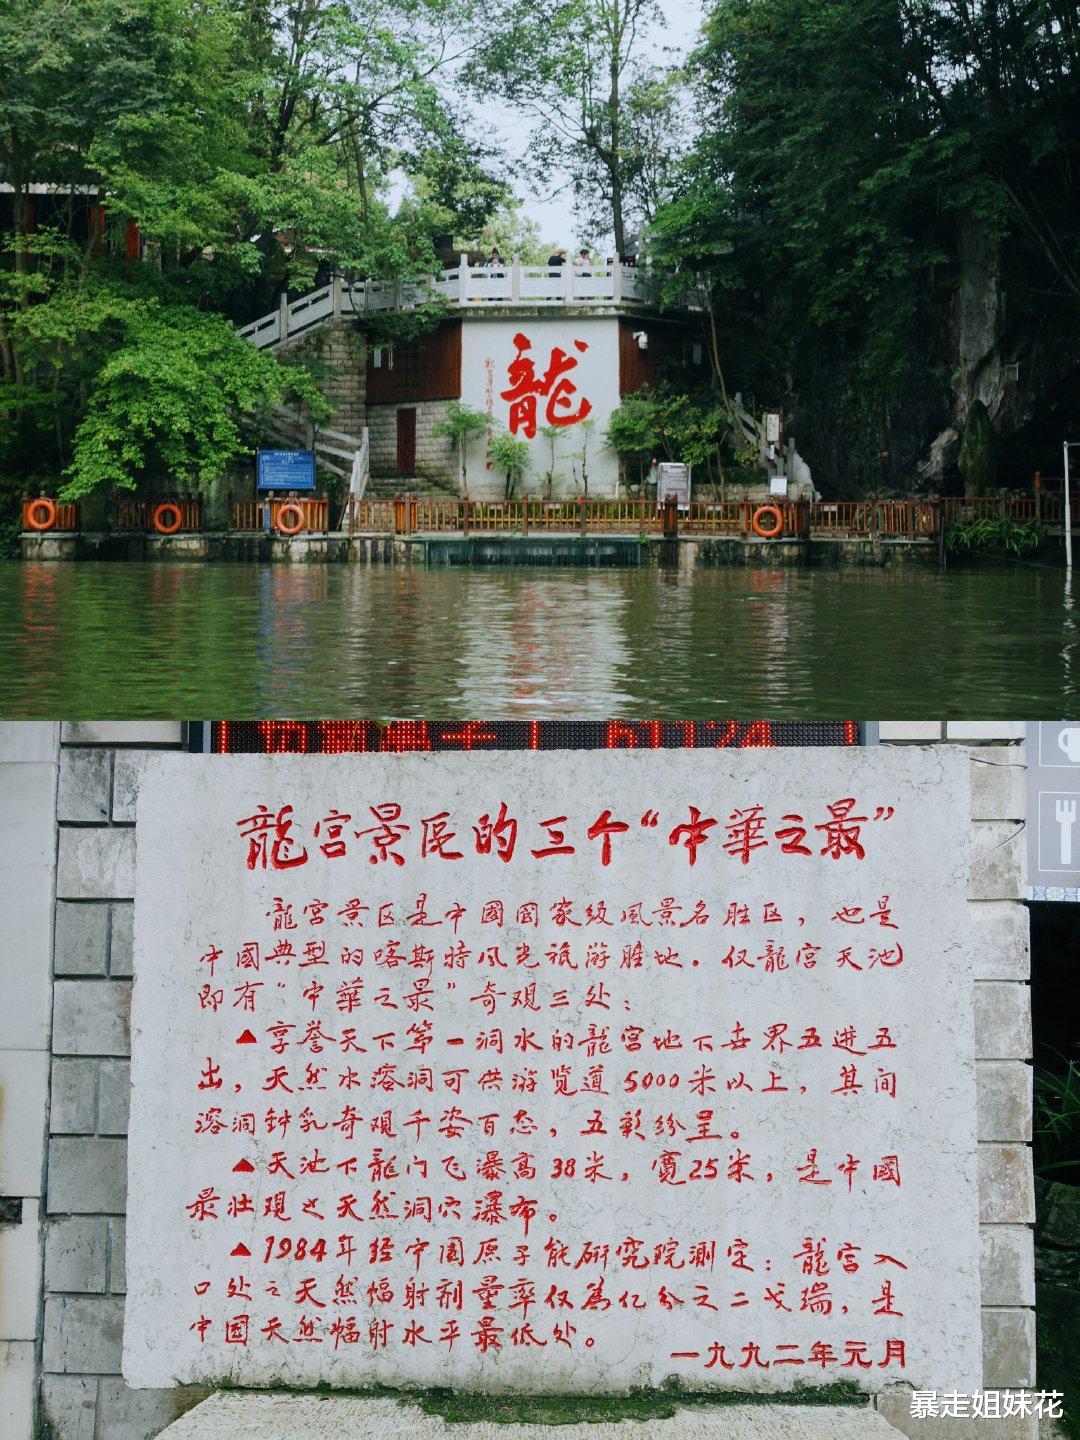 龍
龍宫景区的三个“中華之最”
龍宫景区是中國國家级風景名胜区，也是
中國典型的喀斯特风光旅游胜地。仅龍宫天池
即有“中華之最”奇观三处：
▲享誉天下第一洞水的龍宫地下世界五进五
出，天然水溶洞可供游览道5000米以上，其间
溶洞钟乳奇观千姿百态，五彩纷呈。
▲天池下龍门飞瀑高38米，寬25米，是中國
最壮观之天然洞穴瀑布。
▲1984年经中国原子能研究院測定：龍宫入
口处之天然辐射剂量率仅為亿分之二戈瑞，是
中国天然辐射水平最低处。
一九九二年元月
暴走姐妹花